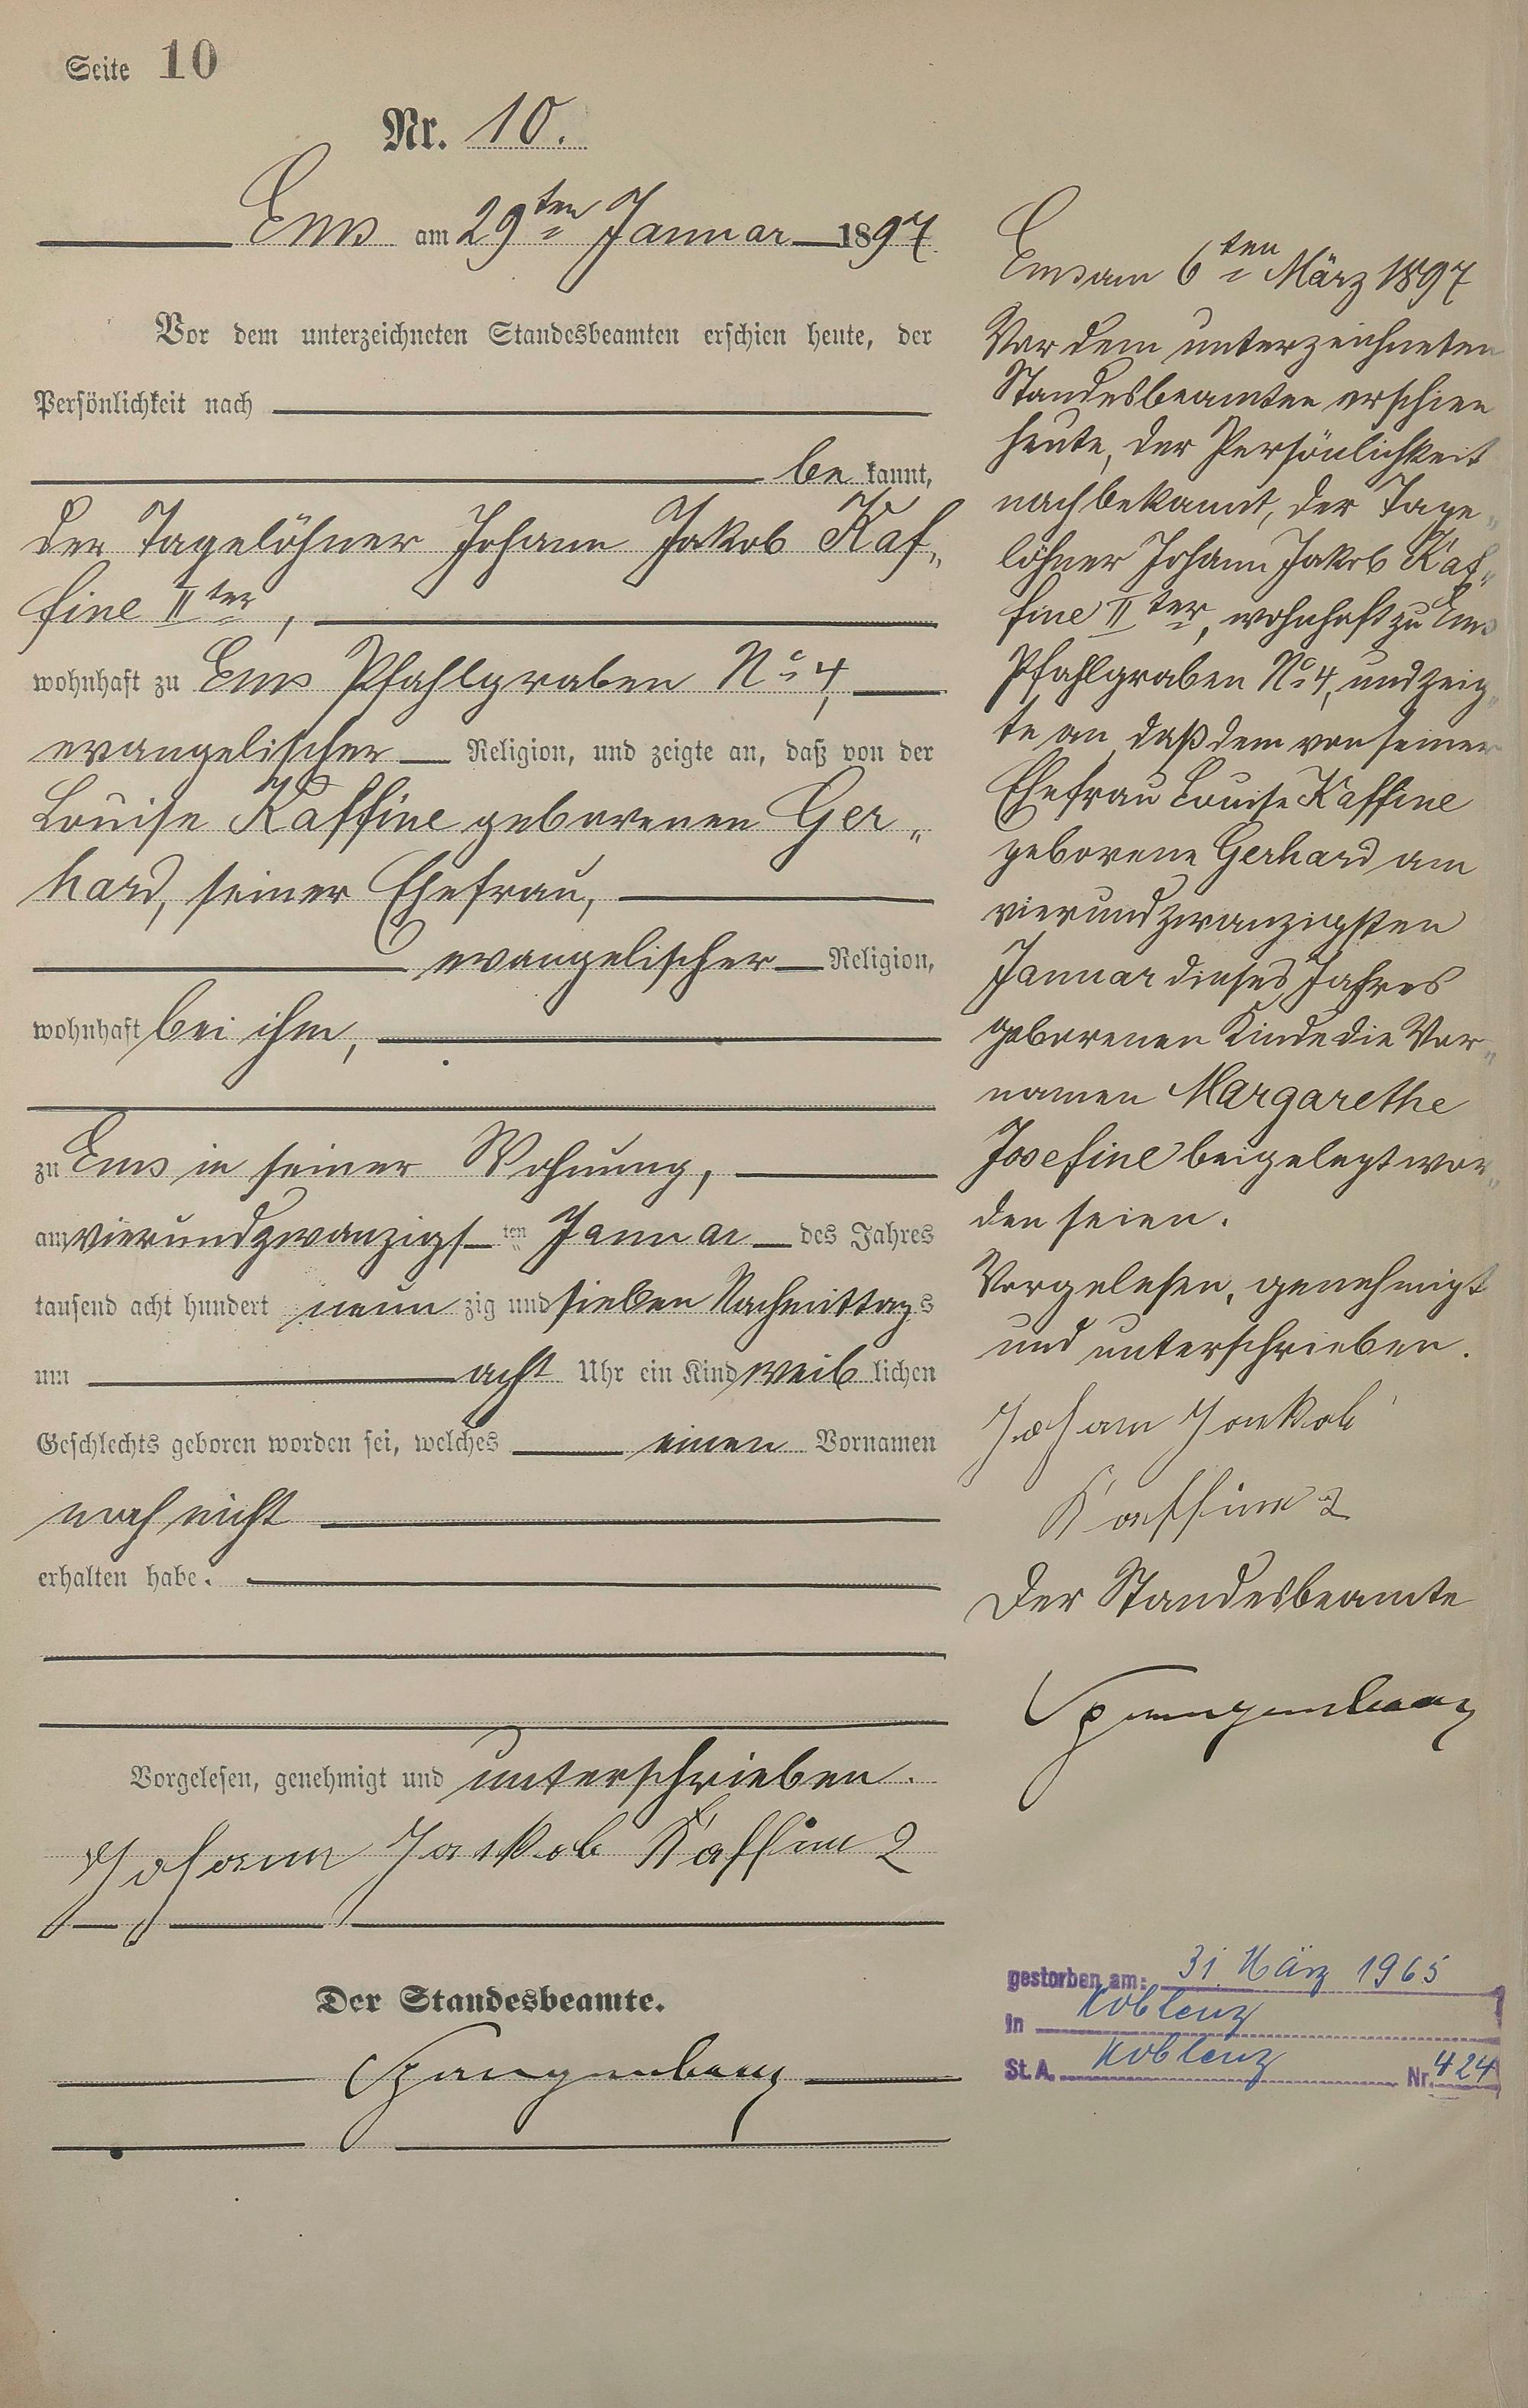 Seite 10
Nr. 10.
Ems am 29ten Januar 1897
Vor dem unterzeichneten Standesbeamten erschien heute, der
Persönlichkeit nach
be kannt,
der Tagelöhner Johann Jakob Kaf„
fine IIter,
wohnhaft zu Ems Pfahlgraben No 4,
evangelischer Religion, und zeigte an, daß von der
Louise Kaffine geborenen Ger„
hard, seiner Ehefrau,
evangelischer Religion,
wohnhaft bei ihm,
zu Ems in seiner Wohnung,
am vierundzwanzigs ten Januar des Jahres
tausend acht hundert neun zig und sieben Nachmittags
um acht Uhr ein Kind weib lichen
Geschlechts geboren worden sei, welches einen Vornamen
noch nicht
erhalten habe.
Vorgelesen, genehmigt und unterschrieben.
Johann Jackob Kaffine 2
Der Standesbeamte.
Spangenberg
Ems am 6ten März 1897
Vor dem unterzeichneten
Standesbeamten erschien
heute, der Persönlichkeit
nach bekannt, der Tage„
löhner Johann Jakob Kaf„
fine IIter, wohnhaft zu Ems
Pfahlgraben No 4, und zeig„
te an daß dem von seiner
Ehefrau Louise Kaffine
geborene Gerhard am
vierundzwanzigsten
Januar dieses Jahres
geborenen Kinde die Vor„
namen Margarethe
Josefine beigelegt wor„
den seien.
Vorgelesen, genehmigt
und unterschrieben.
Johann Jackob
Kaffine 2
Der Standesbeamte
Spangenberg
gestorben am: 31. März 1965
in Koblenz
St. A. Koblenz Nr. 424